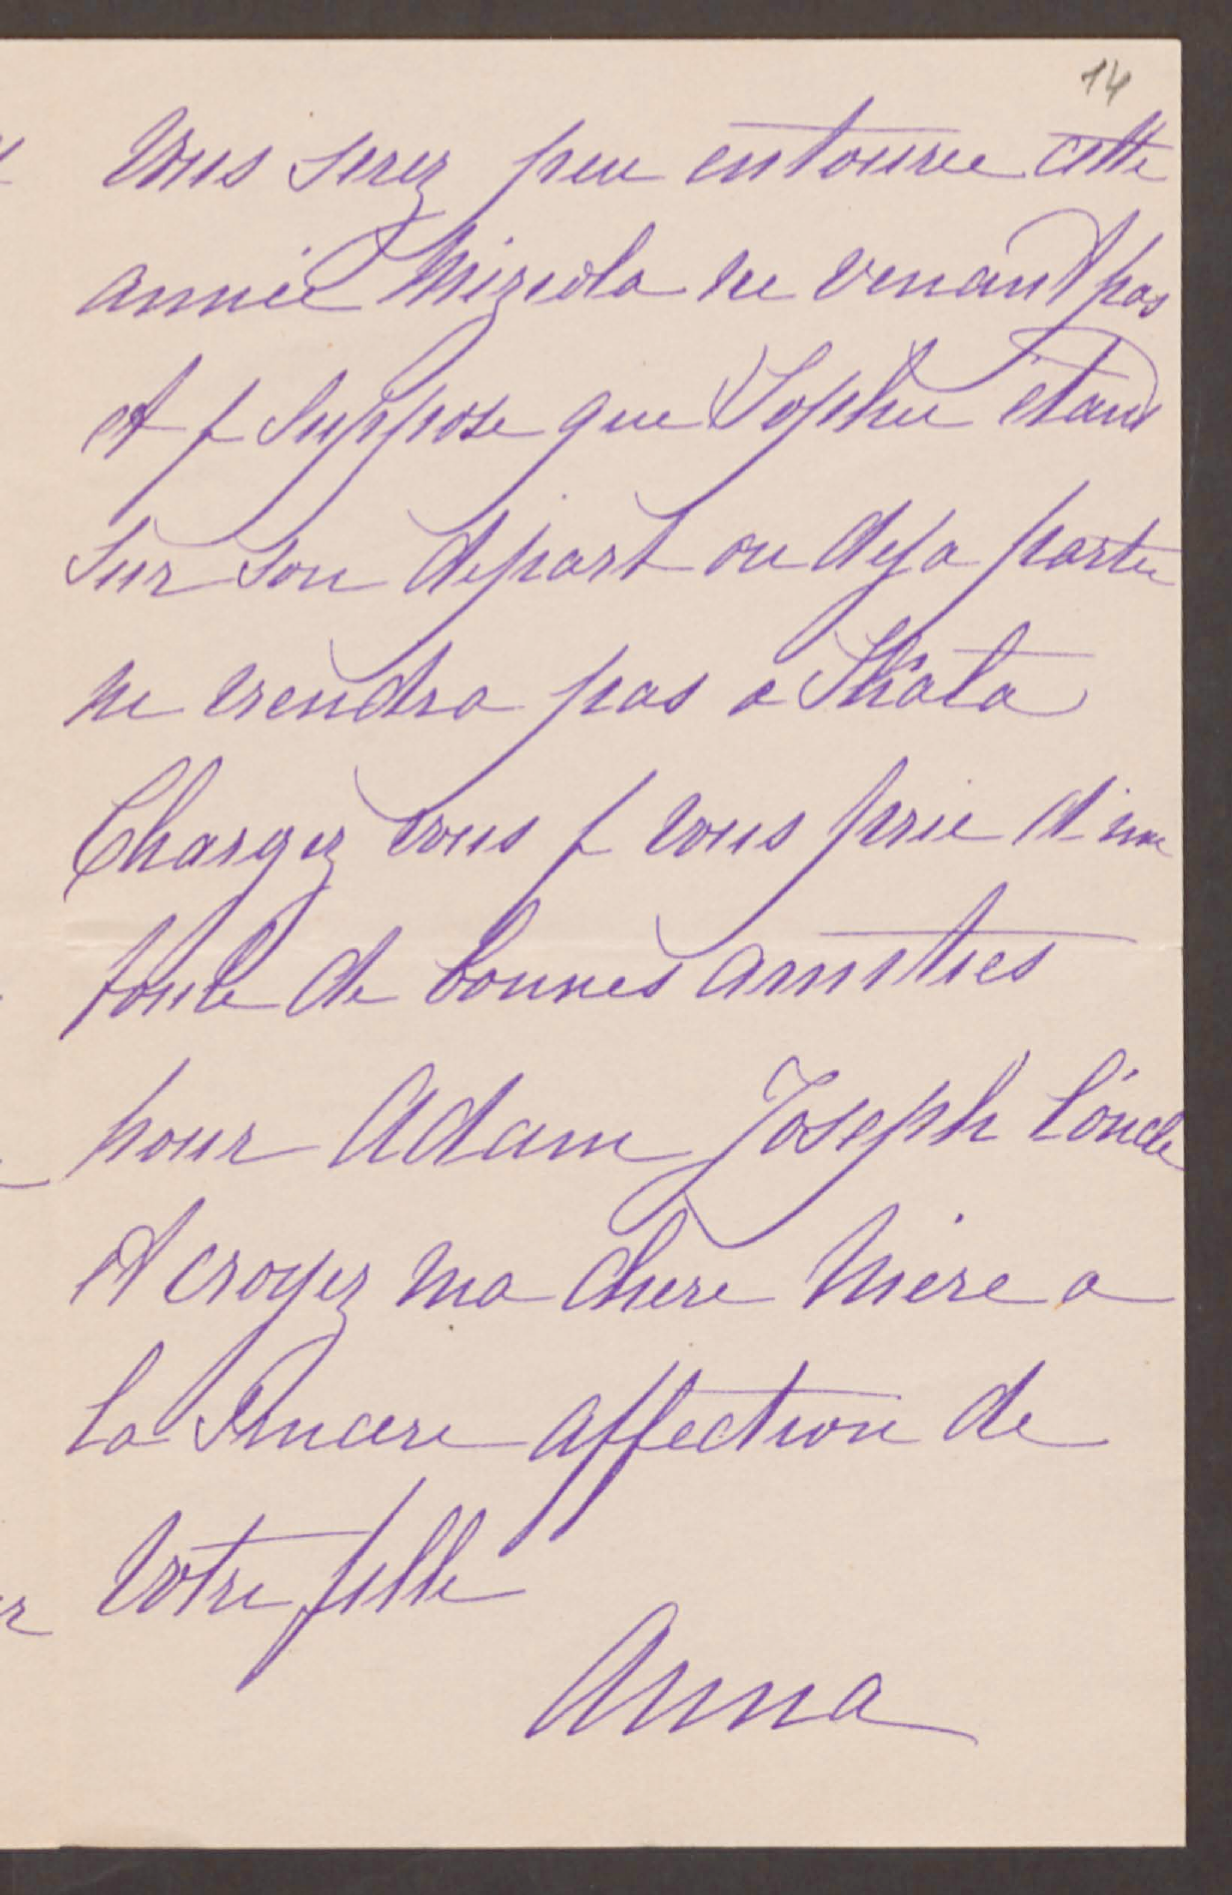 14
Vous serez peu entourée cette
année Miziola ne venant pas
et j suppose que Sophie étant
sur son depart ou deja partie
ne viendra pas a Skala
Chargez vous j vous prie d'une
foule de bonnes amities
pour Adam Joseph l'oncle
et croyez ma chere Mère a
la sincere affection de
Votre fille
Anna